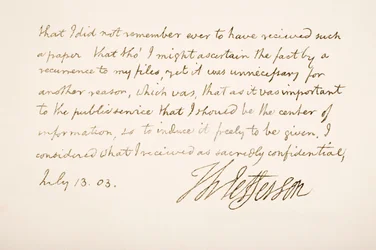 that I did not remember ever to have recieved such
a paper that tho' I might ascertain the fact by a
recurrence to my files, yet it was unnecessary for
another reason, which was, that as it was important
to the public service that I should be the center of
information, so to induce it freely to be given, I
considered what I recieved as sacredly confidential;
July 13. 03.
Th Jefferson